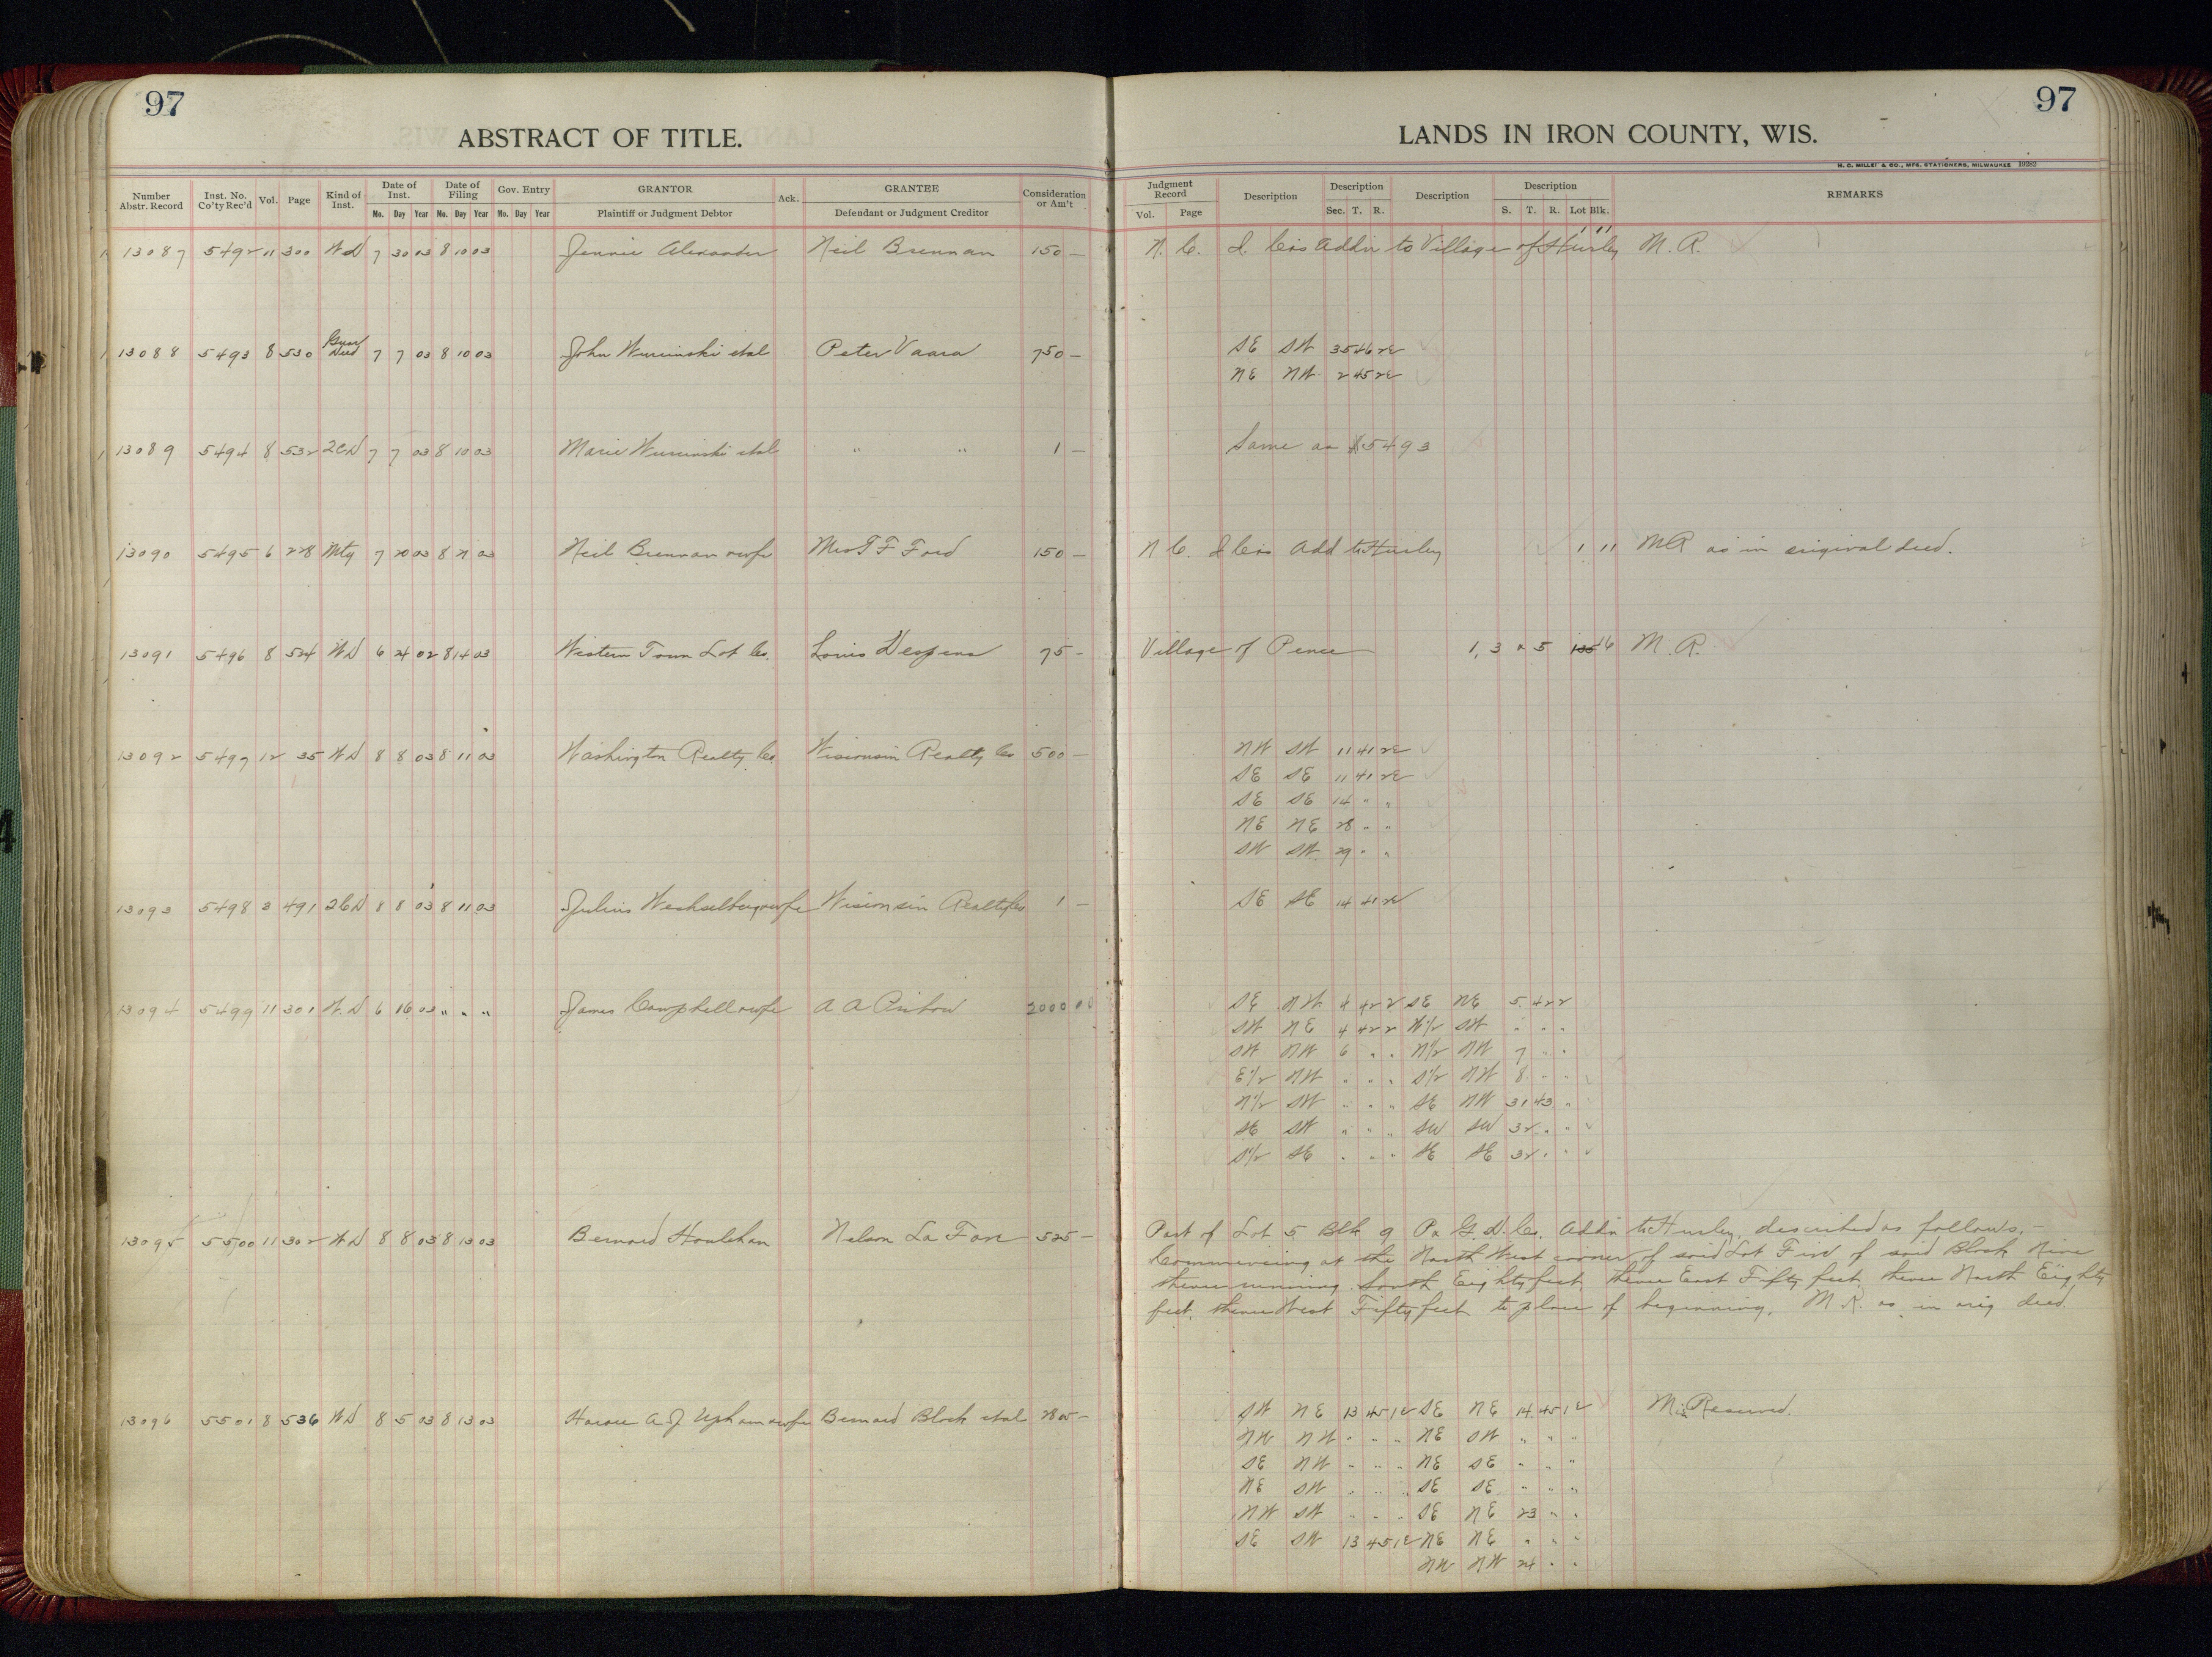 97
97
ABSTRACT OF TITLE.
LANDS IN IRON COUNTY, WIS.
H. C. MILLER CO., MFG. STATIONERS, MILWAUKEE
Number Abstr. Record Inst. No. Co'ty Rec'd Vol. Page Kind of Inst. Date of Inst. Mo. Day Year Date of Filing Mo. Day Year Gov. Entry Mo. Day Year GRANTOR Plaintiff or Judgment Debtor Ack. GRANTEE Defendant or Judgment Creditor Consideration or Am't
Judgment Record Vol. Page Description Description Sec. T. R. Description Description S. T. R. Lot Blk. REMARKS
13087 5492 11 300 WD 7 30 03 8 10 03 Jennie Alexander Neil Brennan 150 — N. C. I. Co's Addn to Village of Hurley 1 11 M. R.
13088 5493 8 530 Guar Deed 7 7 03 8 10 03 John Wurcinski etal Peter Vaara 750 — SE SW 35 46 2E
NE NW 2 45 2E
13089 5494 8 532 2CD 7 7 03 8 10 03 Marie Wurcinski etal " " 1 — Same as 5493
13090 5495 6 228 Mtg 7 20 03 8 03 Neil Brennan & wife Mrs T F Ford 150 — N C. I Co's Add to Hurley 1 11 MR as in original deed.
13091 5496 8 524 WD 6 24 02 8 14 03 Western Town Lot Co. Louis Despens 75 — Village of Pence 1, 3 & 5 16 M. R.
13092 5497 12 35 WD 8 8 03 8 11 03 Washington Realty Co. Wisconsin Realty Co 500 — NW SW 11 41 2E
SE SE 11 41 2E
SE SE 14 " "
NE NE 28 " "
SW SW 29 " "
13093 5498 3 491 2CD 8 8 03 8 11 03 Julius Wechselberg & wife Wisconsin Realty Co 1 — SE SE 14 41 2E
13094 5499 11 301 W.D 6 16 03 " " " James Campbell & wife A A 2000 00 SE NW 4 42 2 SE NE 5 42 2
SW NE 4 42 2 W1/2 SW " " "
SW NW 6 " " N1/2 NW 7 " "
E1/2 NW " " " S1/2 NW 8 " "
N1/2 SW " " " SE NW 31 43 "
SE SW " " " SW SW 32 " "
S1/2 SE " " " SE SE 32 " "
13095 5500 11 302 WD 8 8 03 8 13 03 Bernard Houlehan Nelson La Fave 525 — Part of Lot 5 Blk 9 Pa G. D. Co. Addn to Hurley, described as follows, —
Commencing at the North West corner of said Lot Five of said Block Nine
thence running South Eighty feet, thence East Fifty feet, thence North Eighty
feet, thence West Fifty feet to place of beginning, M. R. as in orig deed.
13096 5501 8 536 WD 8 5 03 8 13 03 Horace A. J. Upham & wife Bernard Block etal 2805 — SW NE 13 45 1E SE NE 14 45 1E Mi. Reserved.
NW NW " " " NE SW " " "
SE NW " " " NE SE " " "
NE SW " " " SE SE " " "
NW SW " " " SE NE 23 " "
SE SW 13 45 1E NE NE " " "
NW NW 24 " "